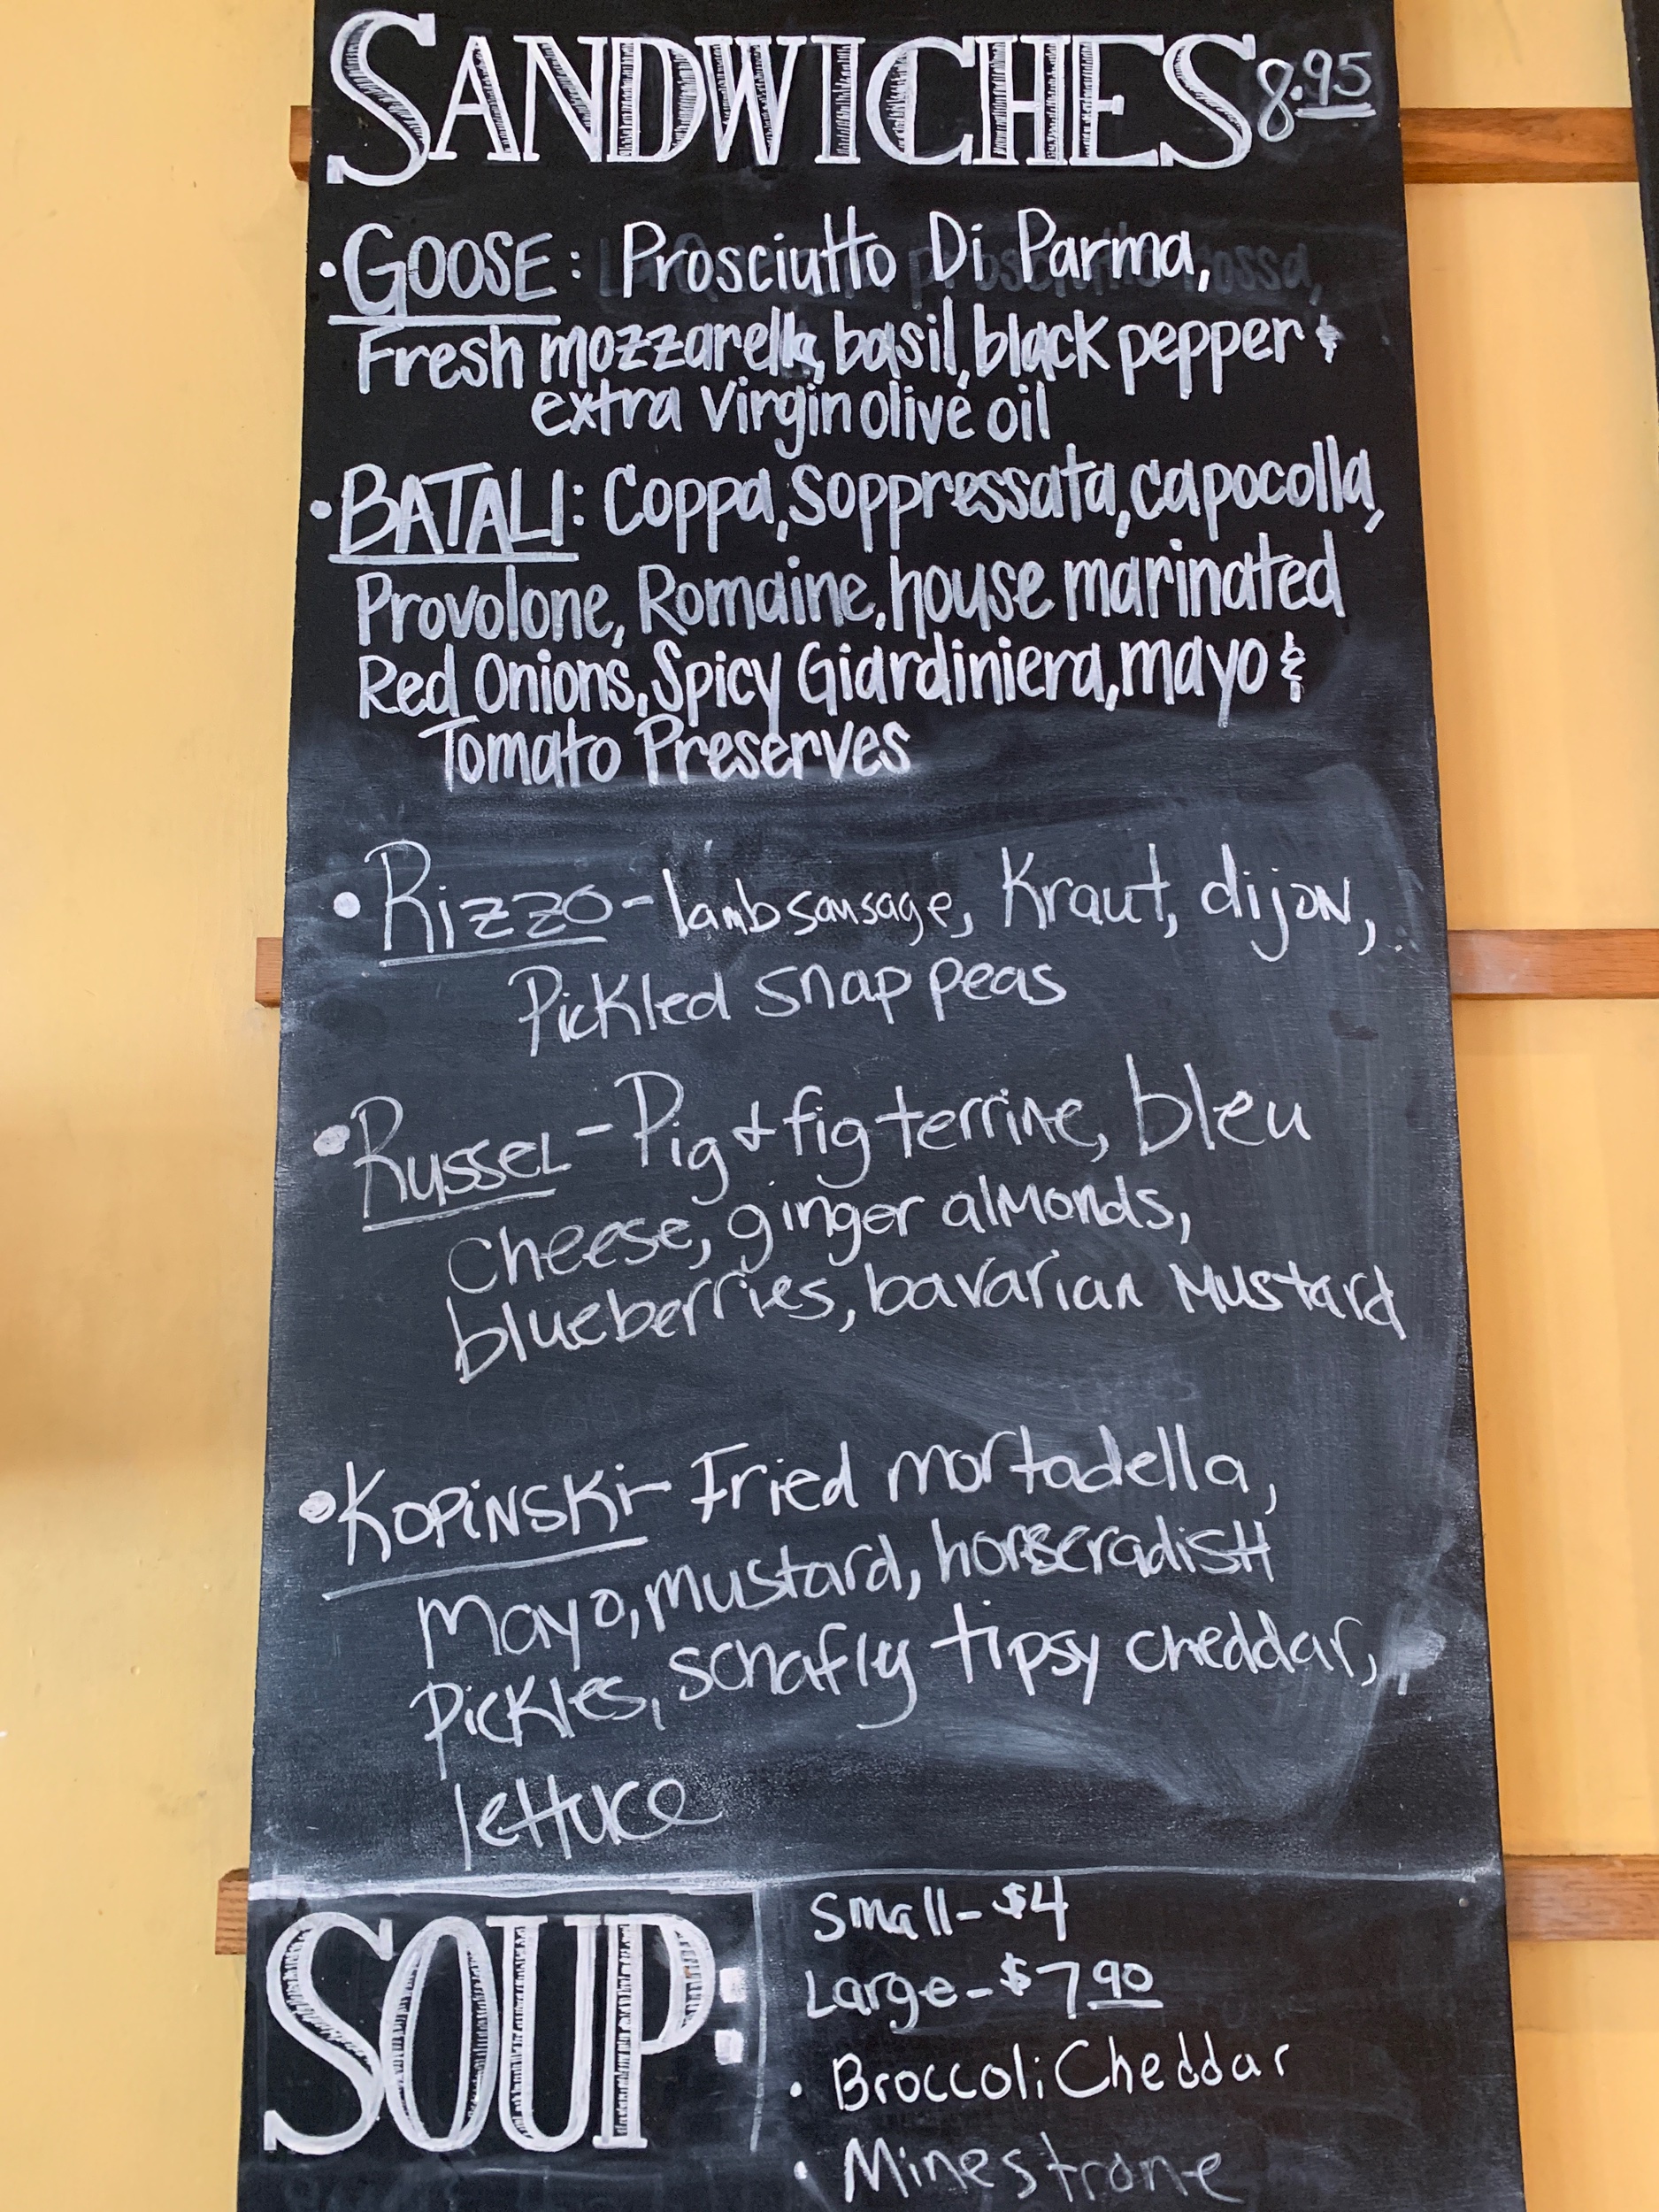 SANDWICHES 8.95
• GOOSE: Prosciutto Di Parma,
Fresh mozzarella, basil, black pepper &
extra Virgin olive oil
• BATALI: Coppa, Soppressata, capocolla,
Provolone, Romaine, house marinated
Red Onions, Spicy Giardiniera, mayo &
Tomato Preserves
• Rizzo - lamb sausage, Kraut, dijon,
Pickled snap peas
• Russel - Pig & fig terrine, bleu
cheese, ginger almonds,
blueberries, bavarian mustard
• Kopinski - Fried mortadella,
Mayo, mustard, horseradish
Pickles, schafly tipsy cheddar,
lettuce
SOUP:
Small - $4
Large - $7.90
• Broccoli Cheddar
• Minestrone